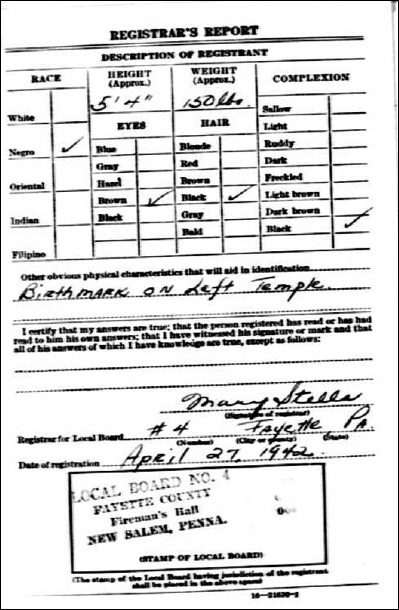 REGISTRAR'S REPORT
DESCRIPTION OF REGISTRANT
RACE HEIGHT (Approx.) WEIGHT (Approx.) COMPLEXION
5' 4" 150 lbs.
White Sallow
EYES HAIR Light
Negro ✓ Blue Blonde Ruddy
Gray Red Dark
Oriental Hazel Brown Freckled
Brown ✓ Black ✓ Light brown
Indian Black Gray Dark brown
Bald Black ✓
Filipino
Other obvious physical characteristics that will aid in identification
Birthmark on Left Temple
I certify that my answers are true; that the person registered has read or has had
read to him his own answers; that I have witnessed his signature or mark and that
all of his answers of which I have knowledge are true, except as follows:
Mary Stella
(Signature of registrar)
Registrar for Local Board #4 Fayette, Pa.
(Number) (City or county) (State)
Date of registration April 27, 1942
LOCAL BOARD NO. 4
FAYETTE COUNTY
Fireman's Hall
NEW SALEM, PENNA.
(STAMP OF LOCAL BOARD)
(The stamp of the Local Board having jurisdiction of the registrant
shall be placed in the above space)
16—21630-2